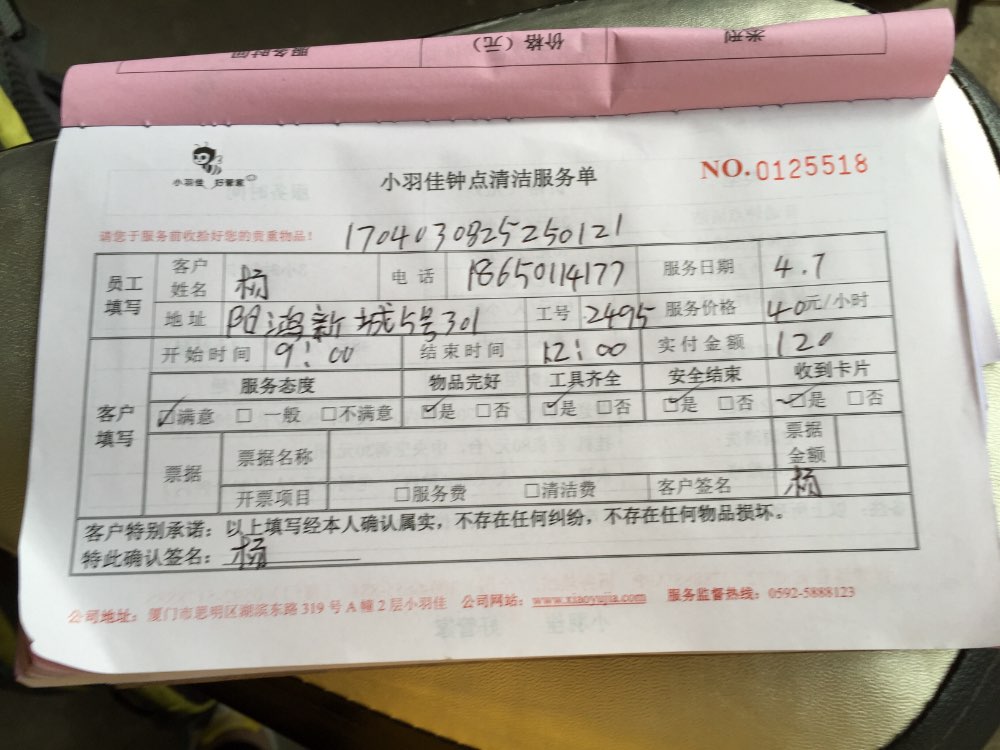 服务时间 价格（元） 类别
小羽佳 好管家
小羽佳钟点清洁服务单
NO.0125518
请您于服务前收拾好您的贵重物品！ 1704030825250121
员工填写 客户姓名 杨 电话 18650114177 服务日期 4.7
地址 阳鸿新城5号301 工号 2495 服务价格 40元/小时
客户填写 开始时间 9:00 结束时间 12:00 实付金额 120
服务态度 物品完好 工具齐全 安全结束 收到卡片
☑满意 □一般 □不满意 ☑是 □否 ☑是 □否 ☑是 □否 ☑是 □否
票据 票据名称 票据金额
开票项目 □服务费 □清洁费 客户签名 杨
客户特别承诺：以上填写经本人确认属实，不存在任何纠纷，不存在任何物品损坏。
特此确认签名：杨
公司地址：厦门市思明区湖滨东路319号A幢2层小羽佳 公司网站：www.xiaoyujia.com 服务监督热线：0592-5888123